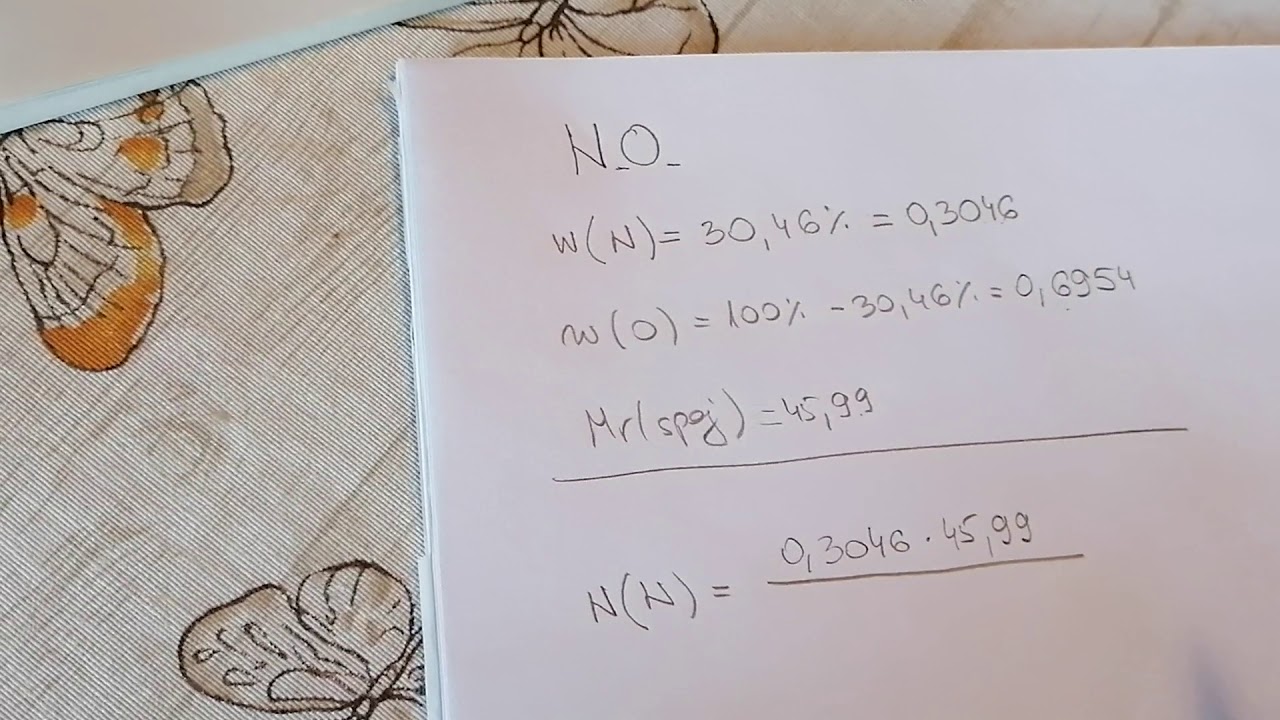 N_O_
w(N) = 30,46% = 0,3046
w(O) = 100% - 30,46% = 0,6954
Mr(spoj) = 45,99
N(N) = 0,3046 · 45,99